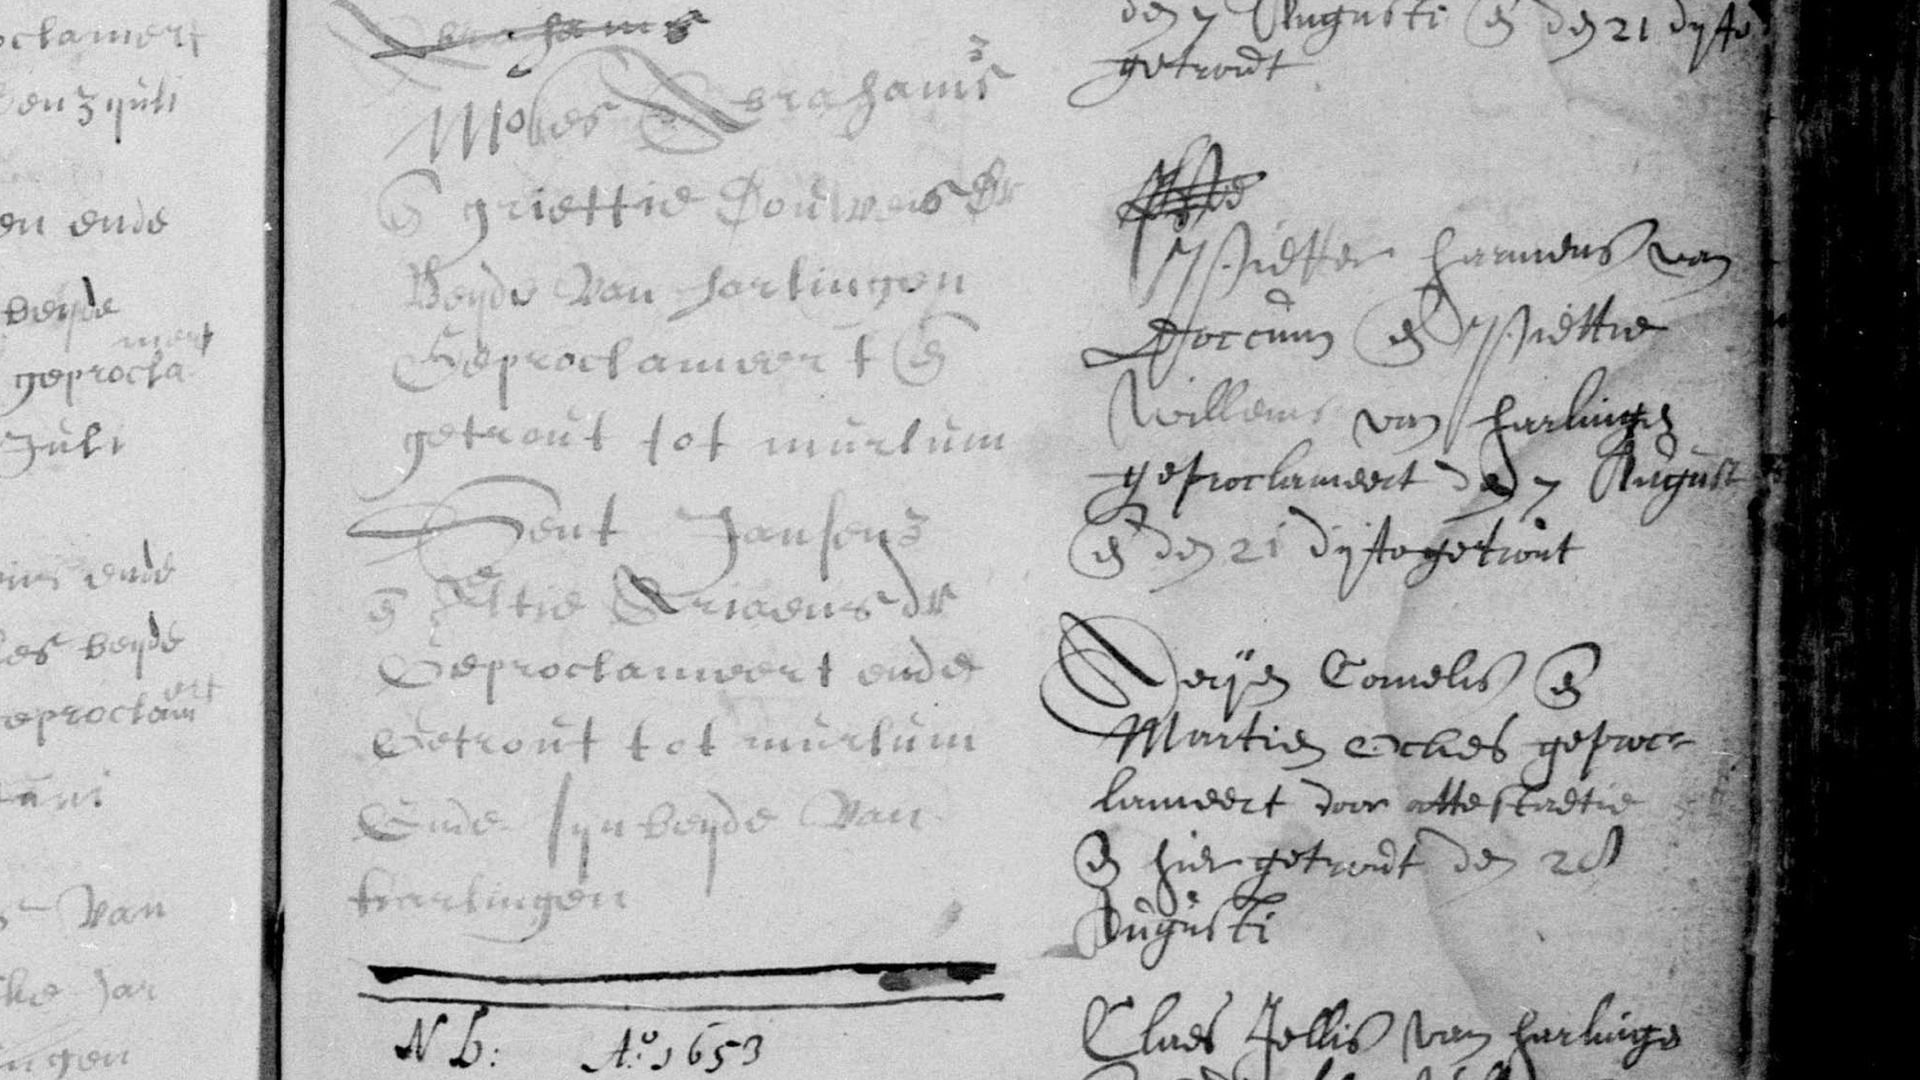 oclameert
den 3 juli
en ende
beyde
meert
geprocla
Juli
ende
beyde
ert
geproclam
van
Jar
ingen
Abrahams
Moses Abrahams
en griettie Douwes dr
Beyde van harlingen
Geproclameert en
getrout tot murlum
Gent Jansens
en Eltie Ariaens dr
Geproclameert ende
Getrout tot murlum
Ende syn beyde van
harlingen
NB: Ao 1653
den 7 Augusti en den 21 dyto
getroudt
Pytter harmens van
Doccum en Pyttie
Willems van harlingen
geproclameert den 7 August
en den 21 dyto getrout
Aryen Cornelis en
Martien Eckes geproc-
lameert door attestaetie
en hier getroudt den 28
Augusti
Claes Jellis van harlinge